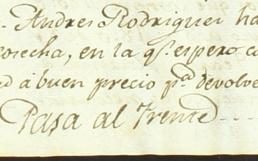 . Andres Rodriguez ha
cosecha, en la qe. espero co
d á buen precio pa. devolve
Pasa al Frente